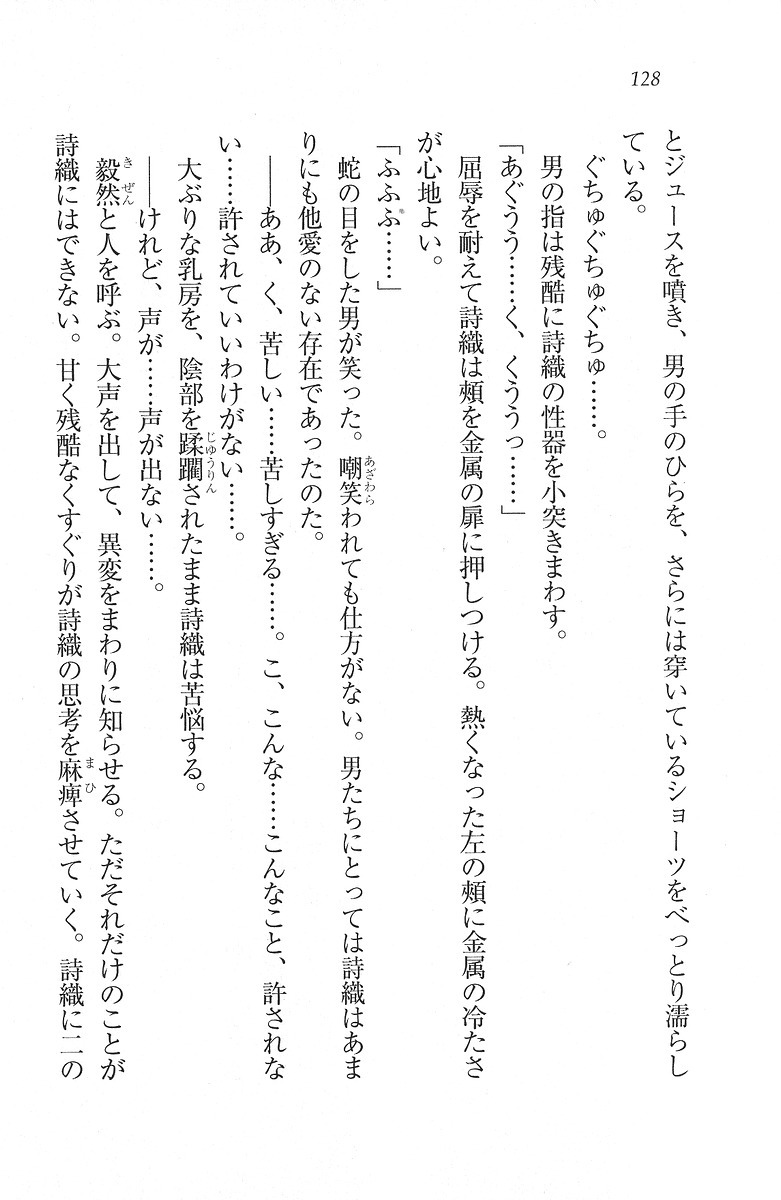 128
とジュースを噴き、男の手のひらを、さらには穿いているショーツをべっとり濡らし
ている。
ぐちゅぐちゅぐちゅ……。
男の指は残酷に詩織の性器を小突きまわす。
「あぐうう……く、くううっ……」
屈辱を耐えて詩織は頬を金属の扉に押しつける。熱くなった左の頬に金属の冷たさ
が心地よい。
「ふふふ……」
蛇の目をした男が笑った。嘲笑われても仕方がない。男たちにとっては詩織はあま
りにも他愛のない存在であったのた。
――ああ、く、苦しい……苦しすぎる……。こ、こんな……こんなこと、許されな
い……許されていいわけがない……。
大ぶりな乳房を、陰部を蹂躙されたまま詩織は苦悩する。
――けれど、声が……声が出ない……。
毅然と人を呼ぶ。大声を出して、異変をまわりに知らせる。ただそれだけのことが
詩織にはできない。甘く残酷なくすぐりが詩織の思考を麻痺させていく。詩織に二の